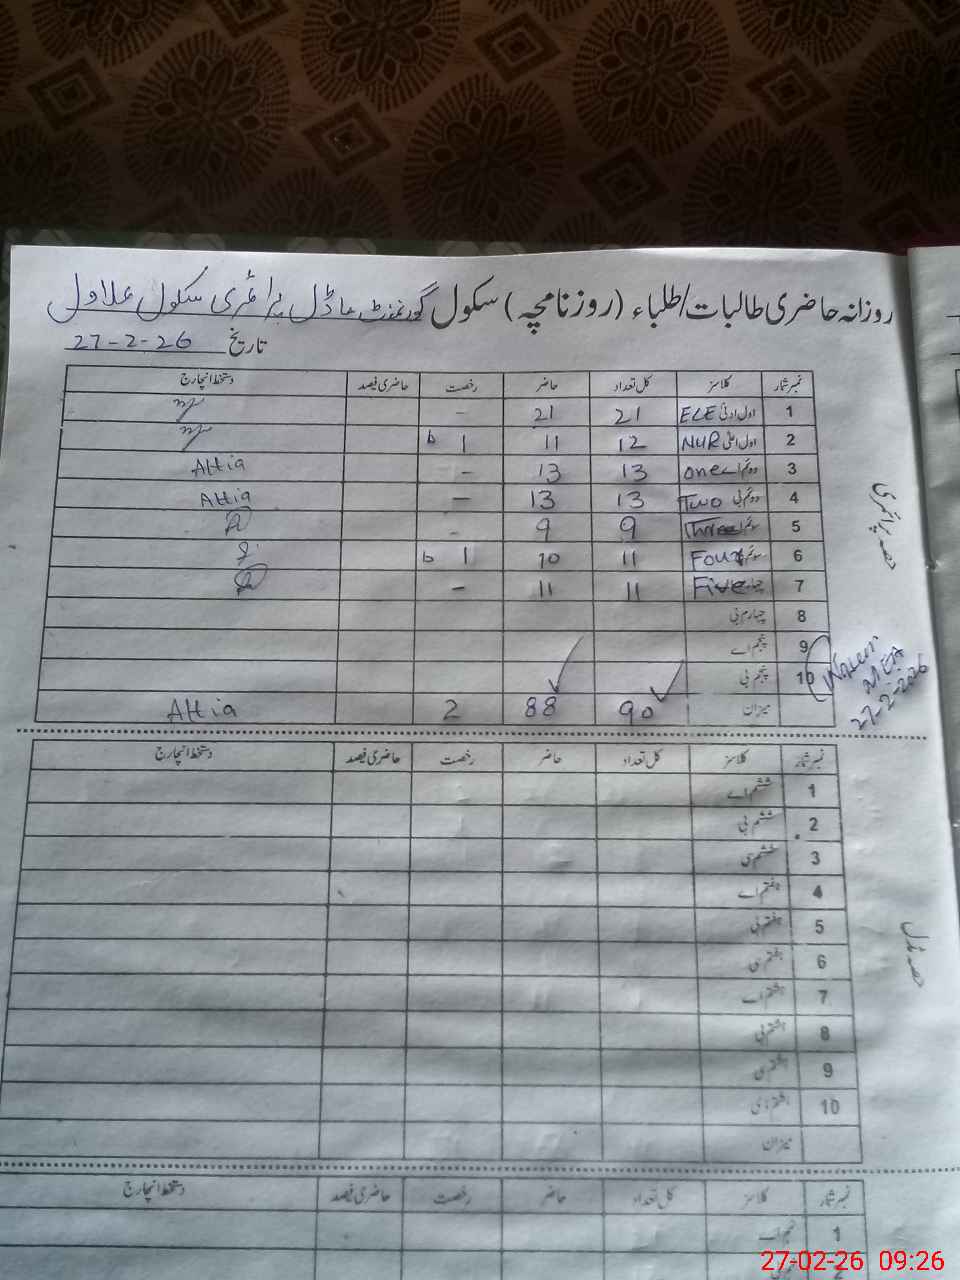 روزانہ حاضری طالبات/طلباء (روزنامچہ) سکول گورنمنٹ ماڈل پرائمری سکول علاول
تاریخ 27-2-26
نمبر شمار کلاسز کل تعداد حاضر رخصت حاضری فیصد دستخط انچارج
1 اول ادنیٰ ECE 21 21 -
2 اول اعلیٰ NUR 12 11 1 b
3 دوئم اے one 13 13 - Attia
4 دوئم بی Two 13 13 - Attia
5 سوئم Three 9 9 -
6 سوئم Four 11 10 1 b
7 چہارم Five 11 11 -
8 چہارم بی
9 پنجم اے
10 پنجم بی
میزان 90 88 2 Attia
حصہ پرائمری
MEA
27-2-2026
نمبر شمار کلاسز کل تعداد حاضر رخصت حاضری فیصد دستخط انچارج
1 ششم اے
2 ششم بی
3 ششم سی
4 ہفتم اے
5 ہفتم بی
6 ہفتم سی
7 ہشتم اے
8 ہشتم بی
9 ہشتم سی
10 ہشتم ڈی
میزان
حصہ مڈل
نمبر شمار کلاسز کل تعداد حاضر رخصت حاضری فیصد دستخط انچارج
1 نہم اے
2
27-02-26 09:26